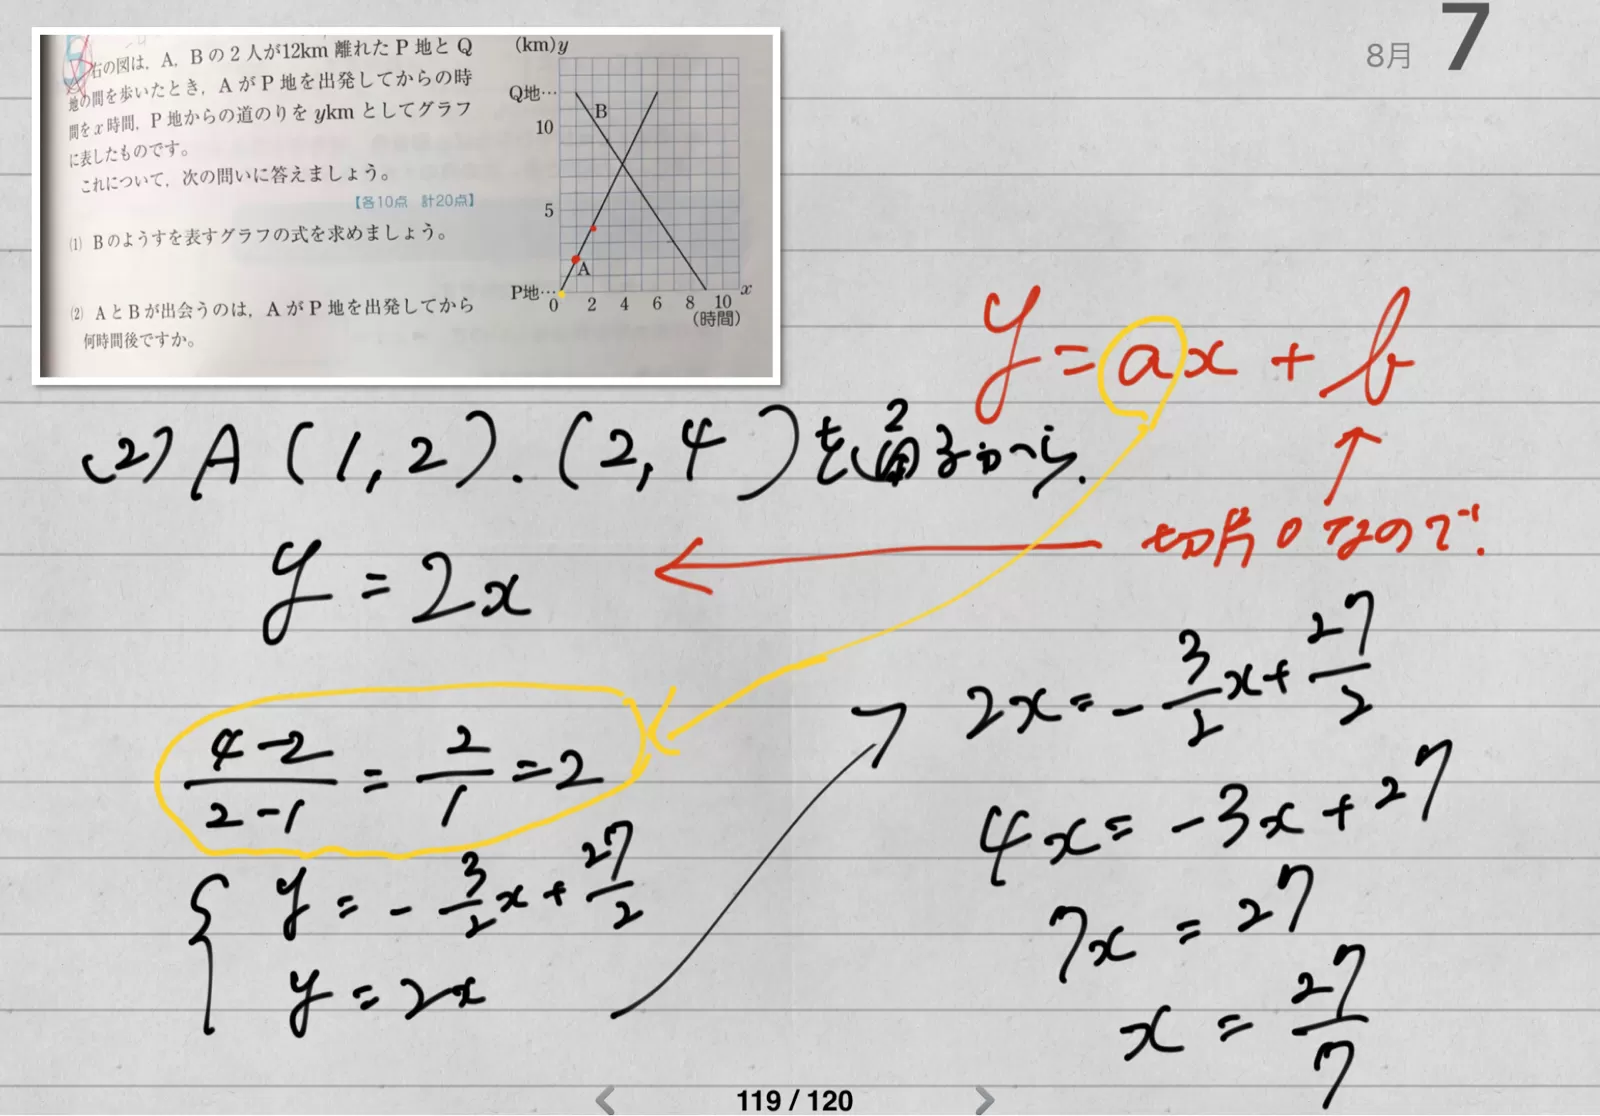 8月 7
右の図は，A，Bの2人が12km 離れたP地とQ
地の間を歩いたとき，AがP地を出発してからの時
間をx時間，P地からの道のりをykmとしてグラフ
に表したものです。
これについて，次の問いに答えましょう。
【各10点 計20点】
(1) Bのようすを表すグラフの式を求めましょう。
(2) AとBが出会うのは，AがP地を出発してから
何時間後ですか。
(km) y
Q地…
B
10
5
A
P地…
0 2 4 6 8 10 x
(時間)
y = ax + b
(2) A (1, 2). (2, 4) を通るから.
切片0なので.
y = 2x
4-2/2-1 = 2/1 = 2
y = -3/2x + 27/2
y = 2x
2x = -3/2x + 27/2
4x = -3x + 27
7x = 27
x = 27/7
119 / 120